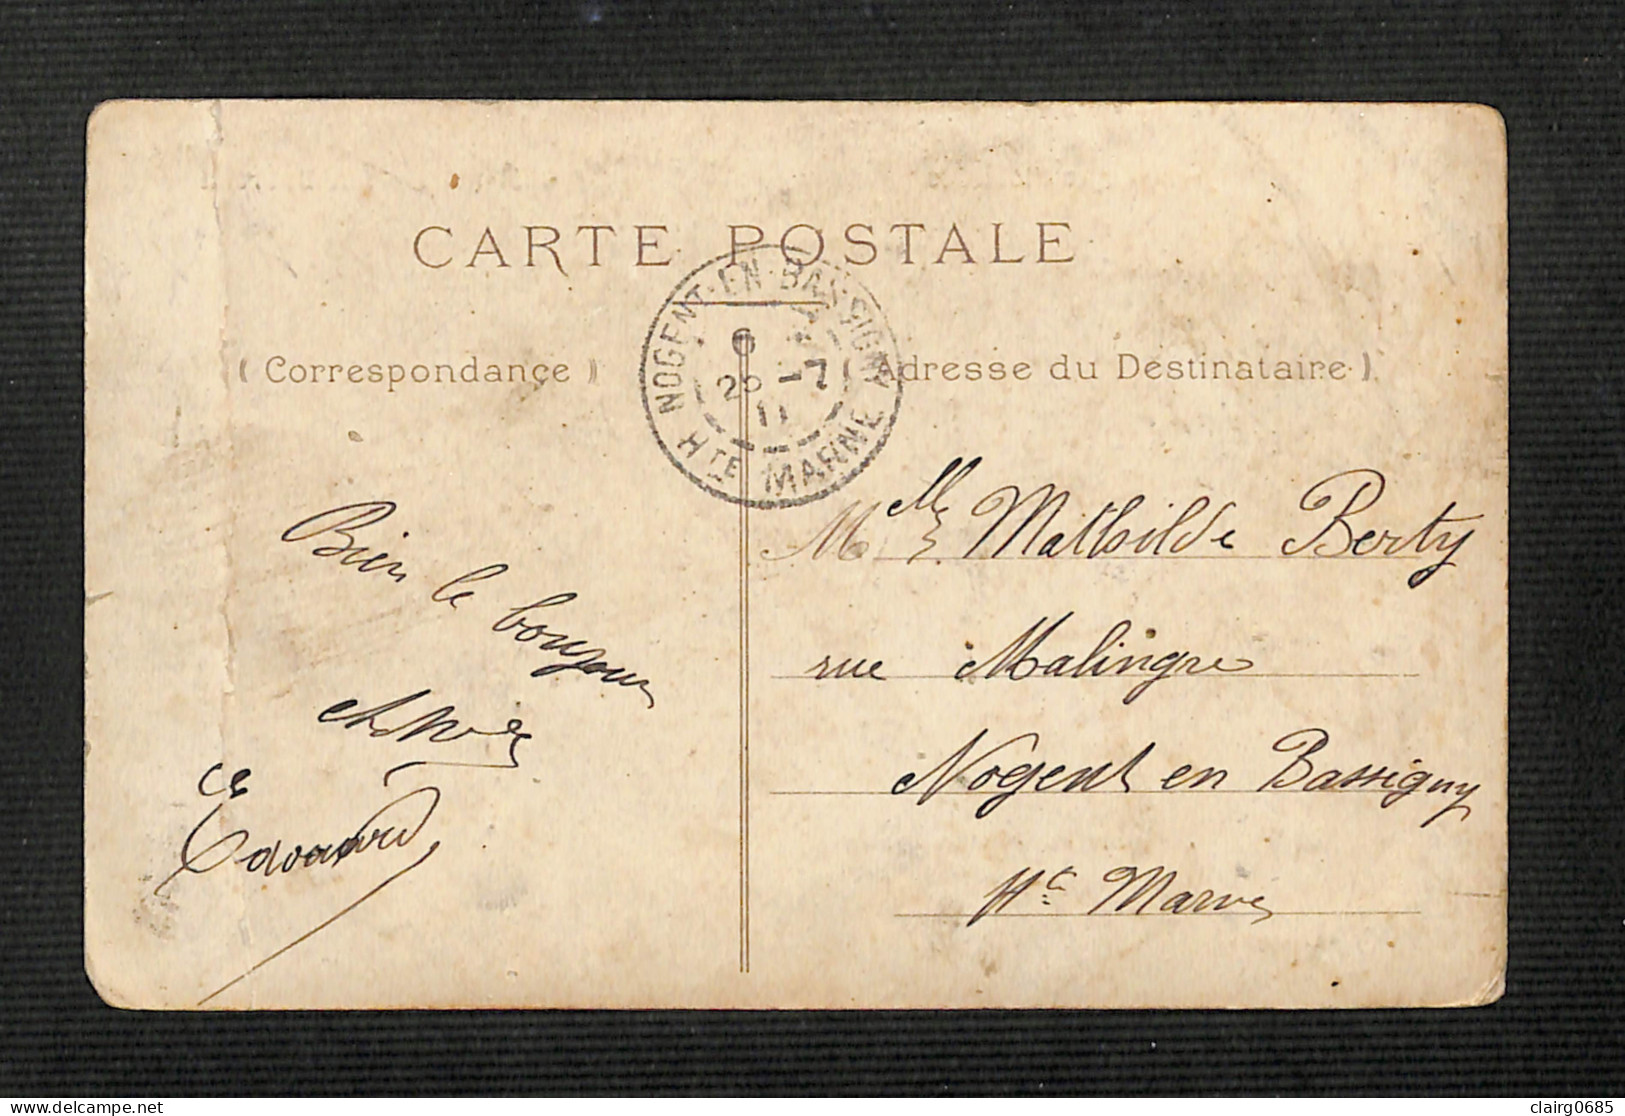 CARTE POSTALE
NOGENT-EN-BASSIGNY
6
25 -7
11
HTE MARNE
( Correspondance )
( Adresse du Destinataire )
Bien le bonjour
Edouard
M Mlle Mathilde Berty
rue Malingre
Nogent en Bassigny
Hte Marne
www.delcampe.net
clairg0685